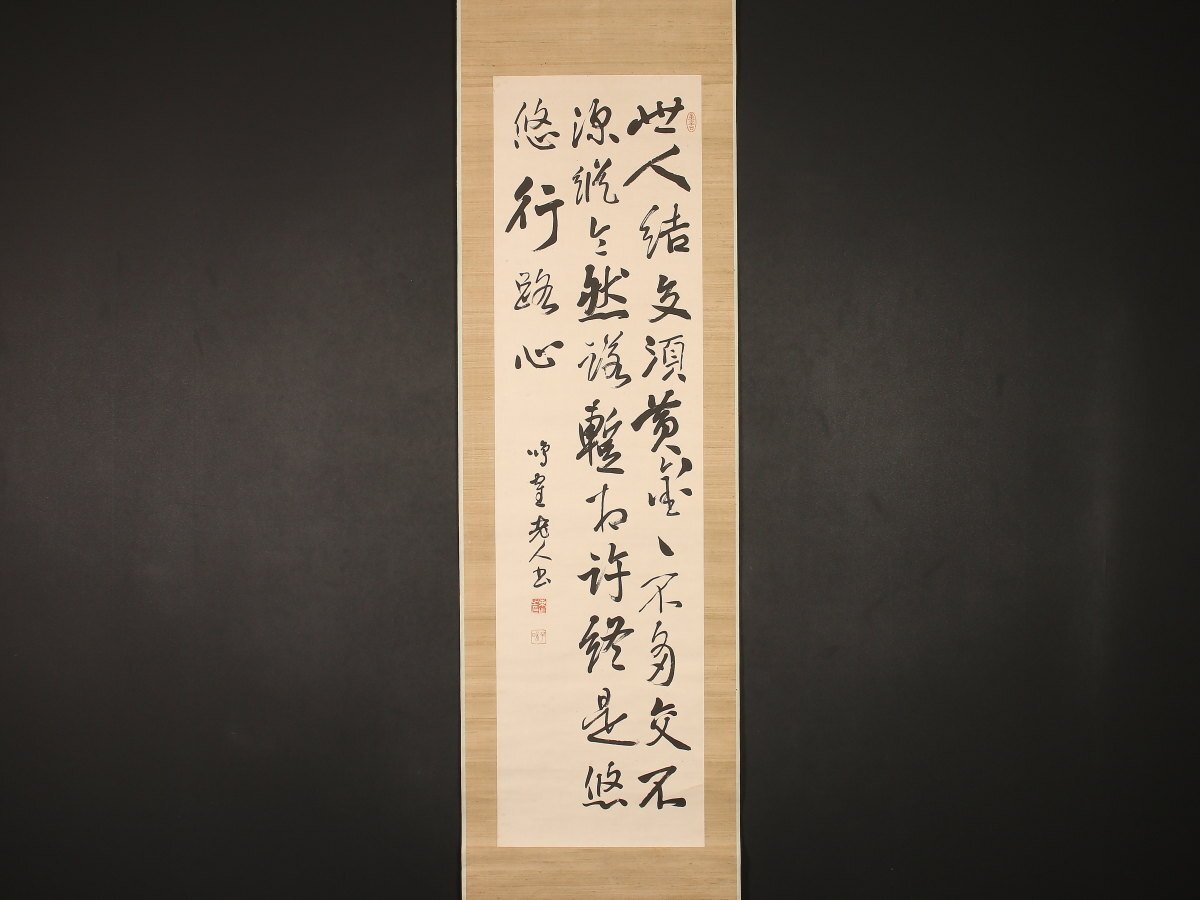 世人結交須黄金〻不多交不
深縦令然諾暫相許終是悠
悠行路心
鳴鶴老人書